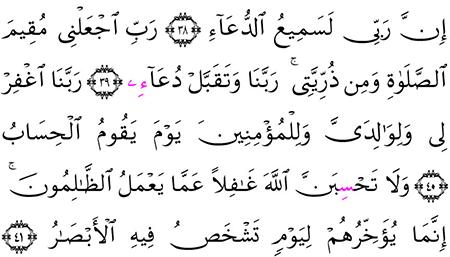 إِنَّ رَبِّى لَسَمِيعُ ٱلدُّعَآءِ ٣٨ رَبِّ ٱجْعَلْنِى مُقِيمَ
ٱلصَّلَوٰةِ وَمِن ذُرِّيَّتِى ۚ رَبَّنَا وَتَقَبَّلْ دُعَآءِۦ ٣٩ رَبَّنَا ٱغْفِرْ
لِى وَلِوَٰلِدَىَّ وَلِلْمُؤْمِنِينَ يَوْمَ يَقُومُ ٱلْحِسَابُ
٤٠ وَلَا تَحْسِبَنَّ ٱللَّهَ غَٰفِلًا عَمَّا يَعْمَلُ ٱلظَّٰلِمُونَ ۚ
إِنَّمَا يُؤَخِّرُهُمْ لِيَوْمٍ تَشْخَصُ فِيهِ ٱلْأَبْصَٰرُ ٤١